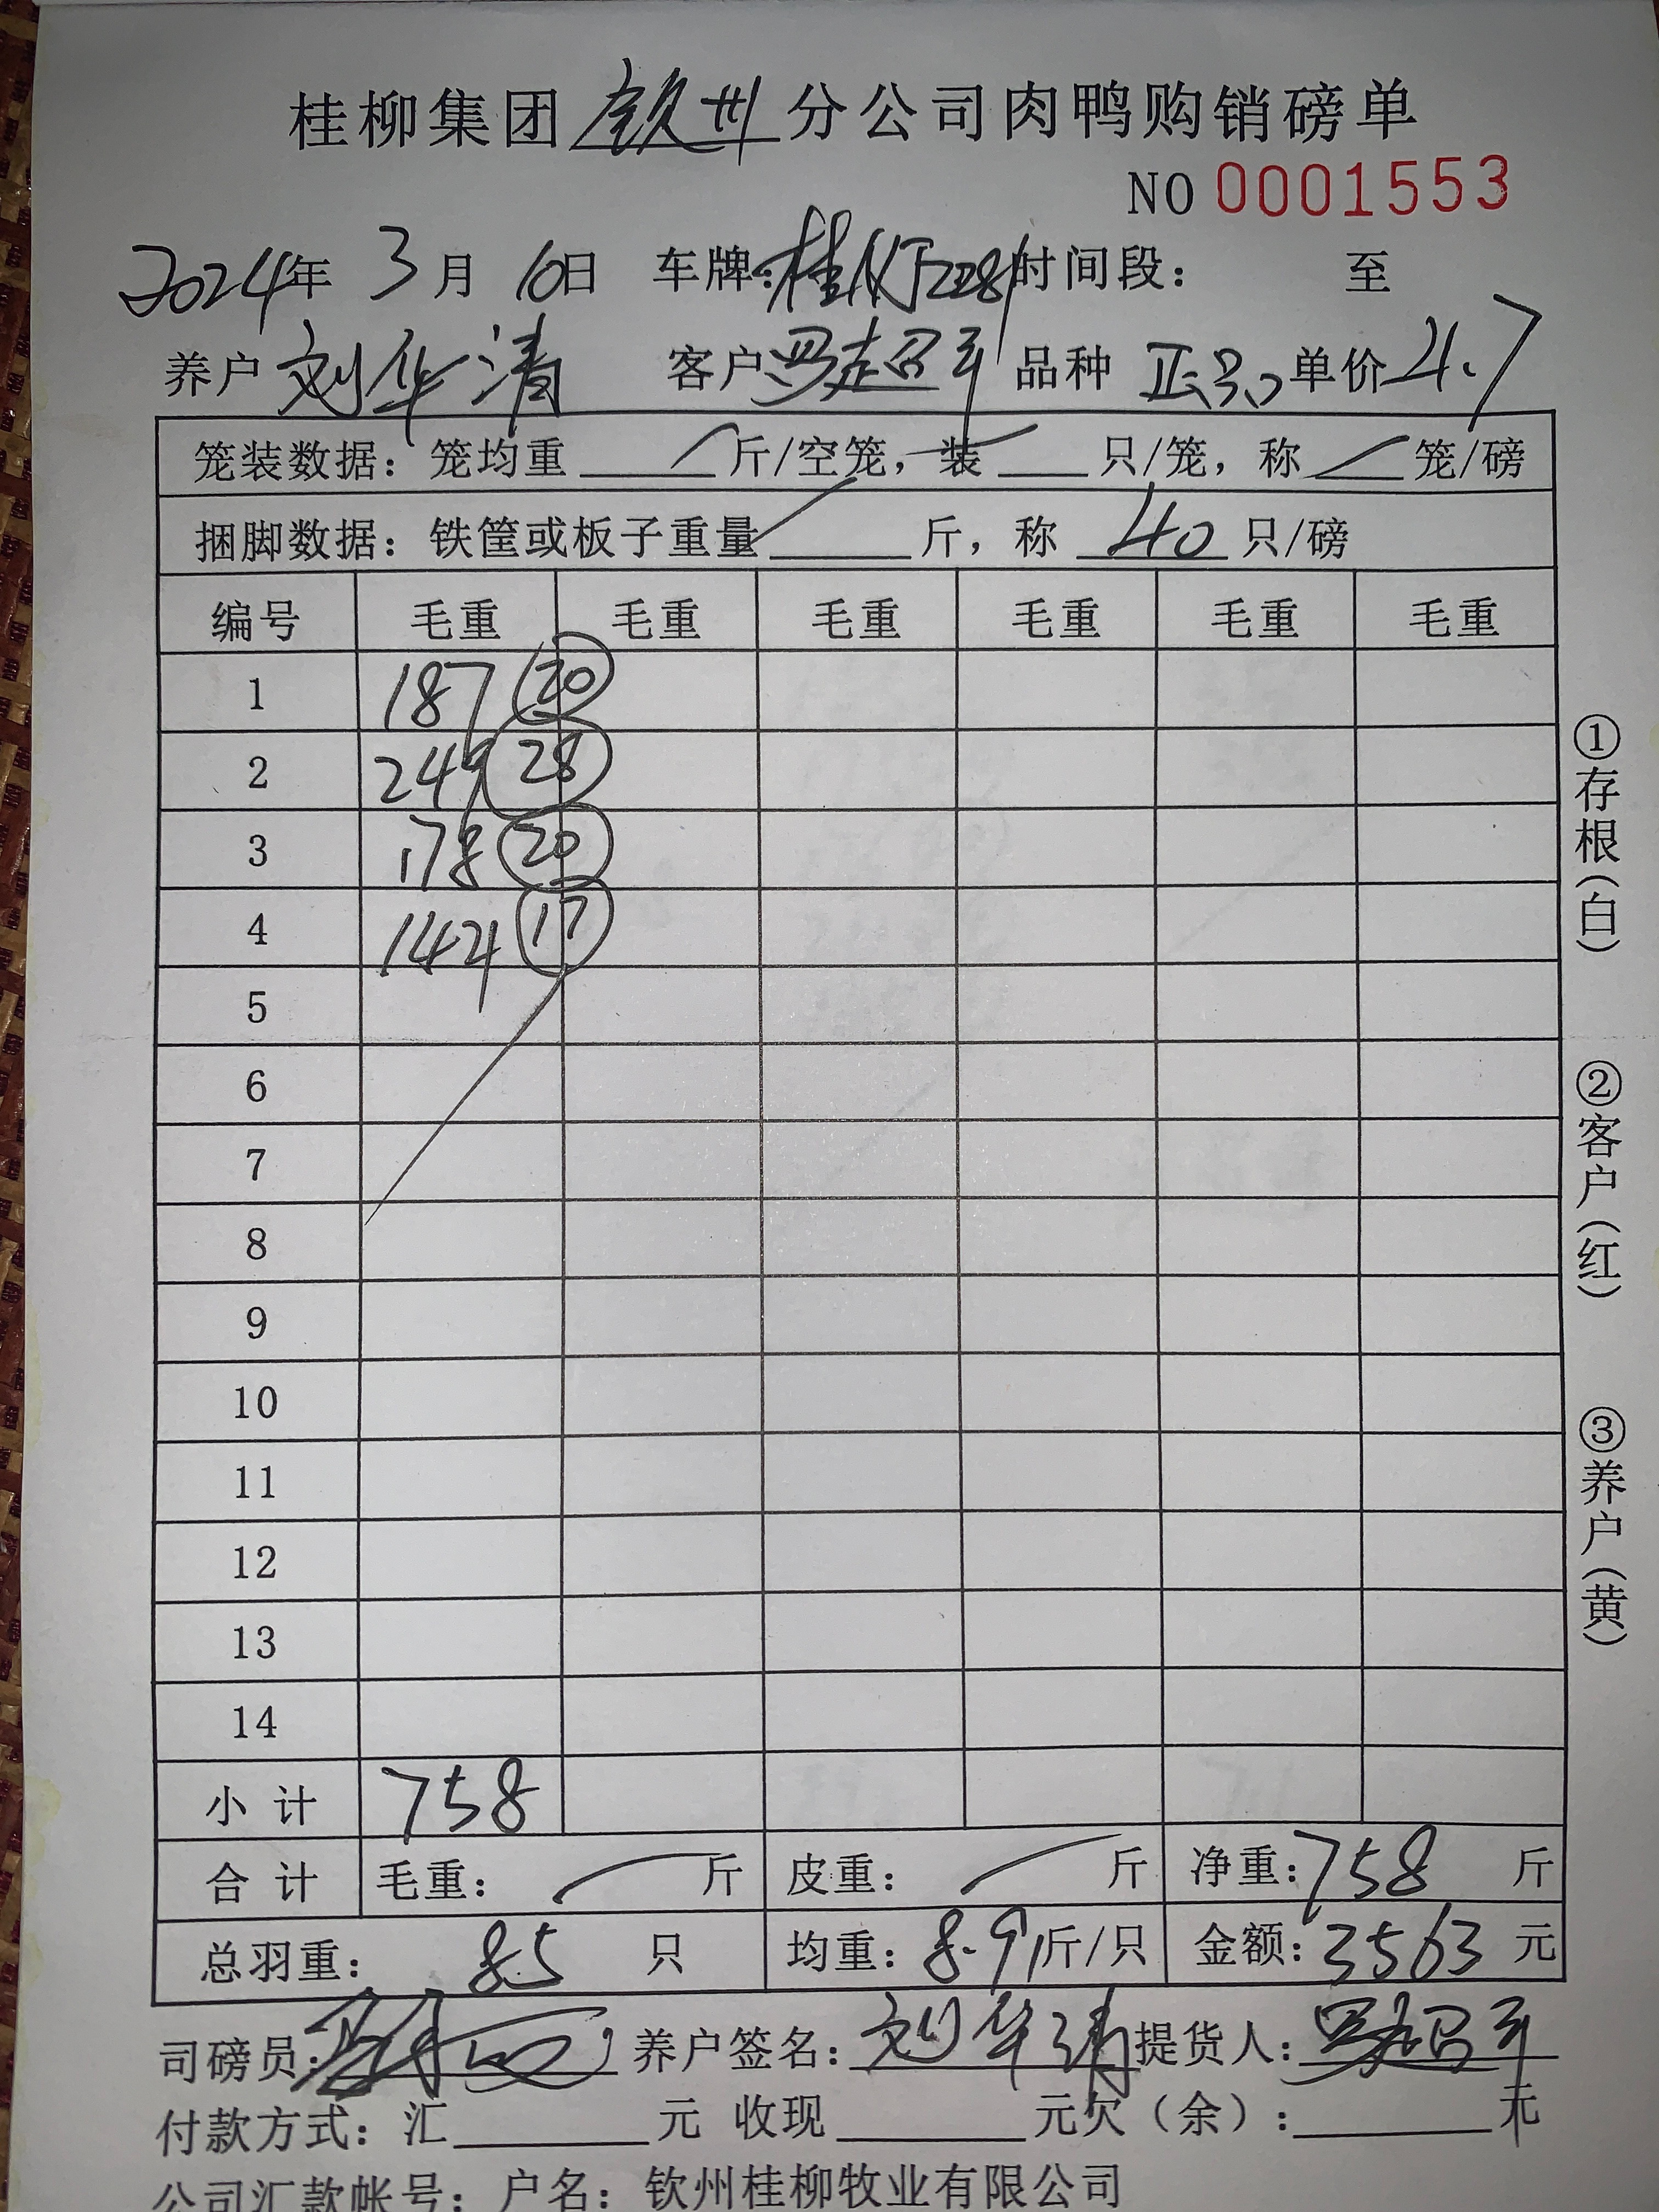 桂柳集团 钦州 分公司肉鸭购销磅单
NO 0001553
2024年 3月 10日 车牌: 桂 时间段: 至
养户 刘华清 客户 罗超平 品种 正品 单价 4.7
笼装数据: 笼均重 斤/空笼, 装 只/笼, 称 笼/磅
捆脚数据: 铁筐或板子重量 斤, 称 40 只/磅
编号 毛重 毛重 毛重 毛重 毛重 毛重
1 187 20
2 249 28
3 178 20
4 144 17
5
6
7
8
9
10
11
12
13
14
小计 758
合计 毛重: 斤 皮重: 斤 净重: 758 斤
总羽重: 85 只 均重: 8.91 斤/只 金额: 3563 元
司磅员: 养户签名: 刘华清 提货人: 罗超平
付款方式: 汇 元 收现 元欠(余): 元
公司汇款帐号: 户名: 钦州桂柳牧业有限公司
①存根(白)
②客户(红)
③养户(黄)